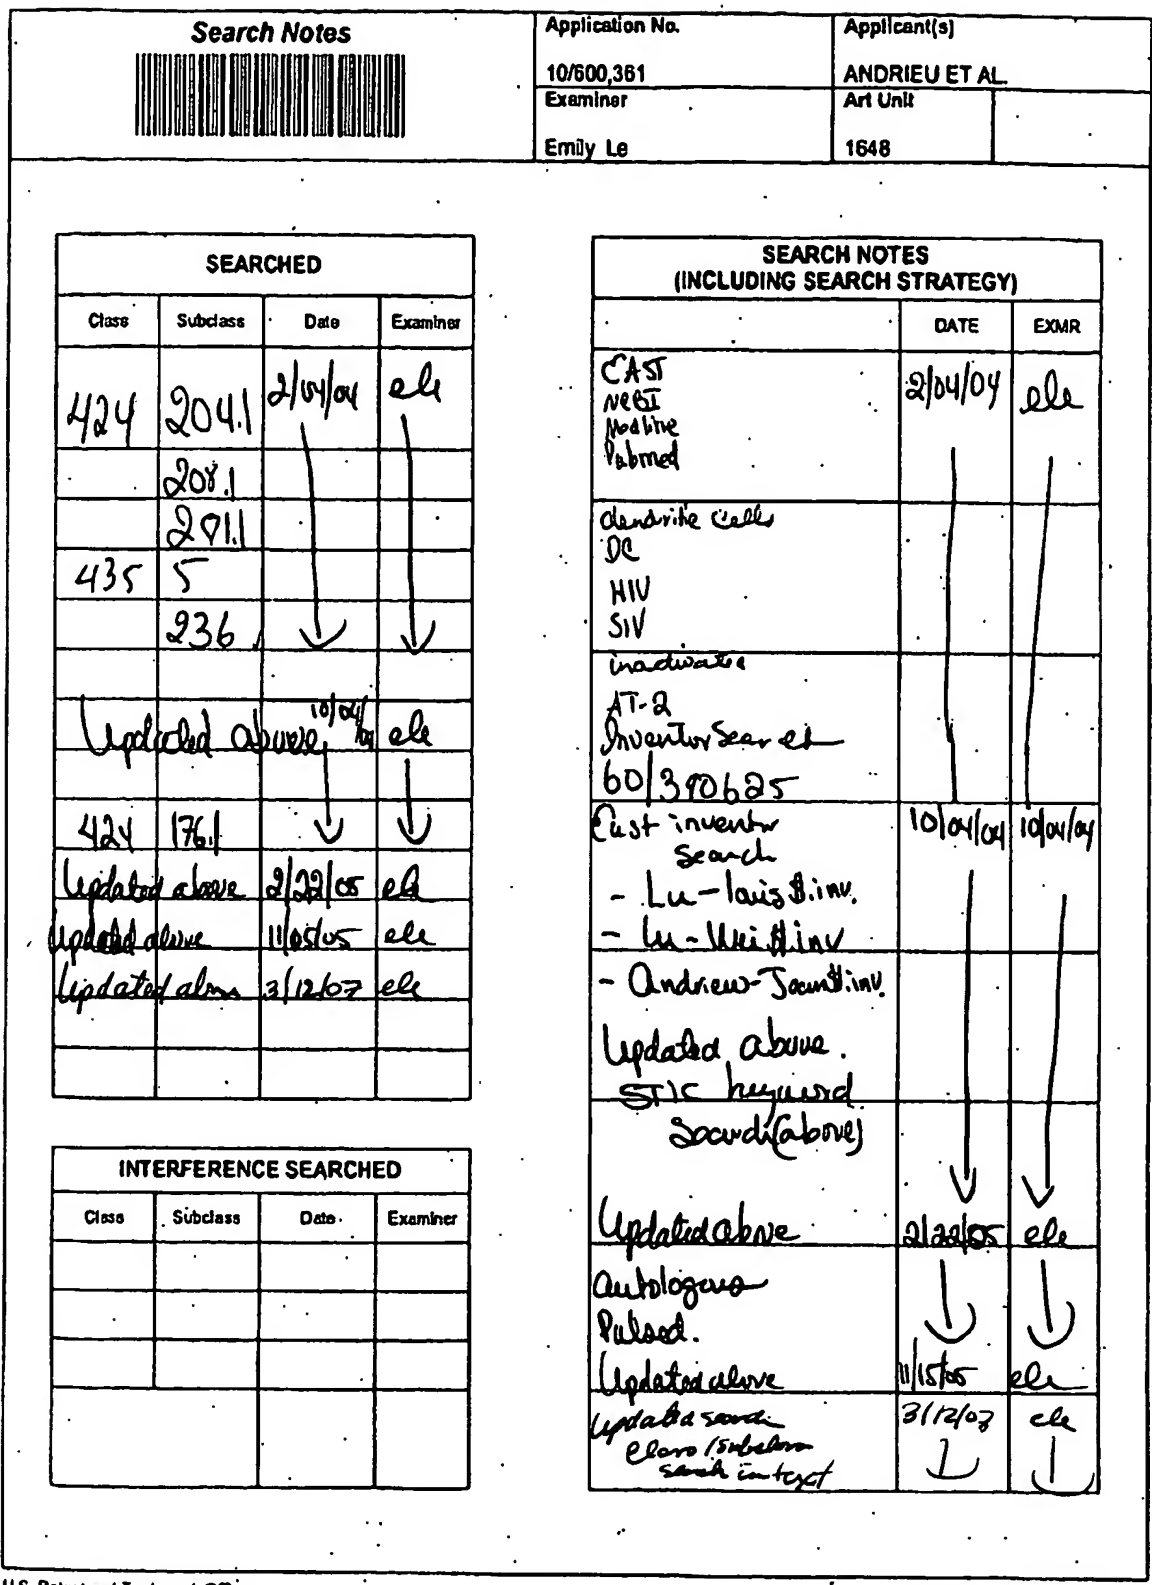 Search Notes
Application No.
Applicant(s)
10/600,361
ANDRIEU ET AL.
Examiner
Art Unit
Emily Le
1648
SEARCHED
Class Subclass Date Examiner
424 204.1 2/04/04 ele
208.1
201.1
435 5
236
Updated above 10/04/04 ele
424 176.1
Updated above 2/22/05 ele
Updated above 11/05/05 ele
Updated above 3/12/07 ele
INTERFERENCE SEARCHED
Class Subclass Date Examiner
SEARCH NOTES
(INCLUDING SEARCH STRATEGY)
DATE EXMR
EAST 2/04/04 ele
NCBI
Medline
Pubmed
dendrite cells
DC
HIV
SIV
inactivated
AT-2
Inventor Search
60/390625
East inventor 10/04/04 10/04/04
Search
- Lu-louis$.inv.
- Lu-Wei$.inv
- Andrieu-Jean$.inv.
Updated above.
STIC keyword
Search (above)
Updated above 2/22/05 ele
Autologous
Pulsed.
Updated above 11/15/05 ele
Updated search 3/12/07 ele
class/subclass
search in text